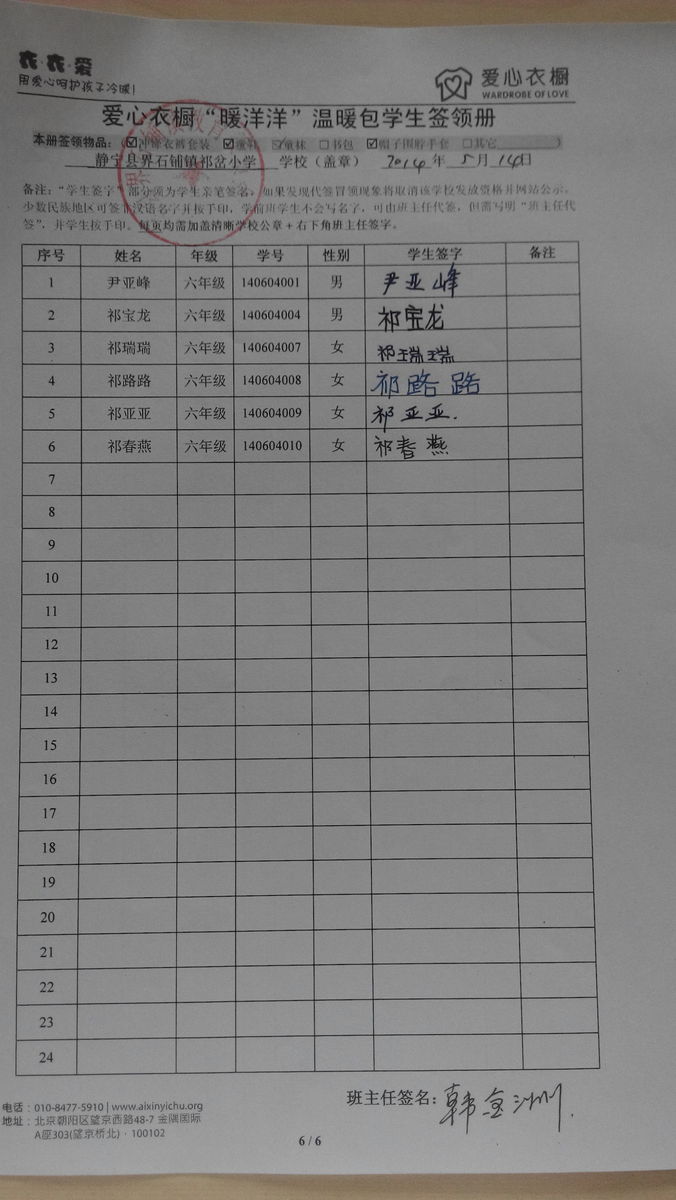 衣·衣·爱
用爱心呵护孩子冷暖!
爱心衣橱
WARDROBE OF LOVE
爱心衣橱“暖洋洋”温暖包学生签领册
本册签领物品：☑冲锋衣裤套装 ☑童鞋 ☑童袜 □书包 ☑帽子围脖手套 □其它 )
静宁县界石铺镇祁岔小学 学校（盖章） 2014年 5月 14日
备注：“学生签字”部分须为学生亲笔签名，如果发现代签冒领现象将取消该学校发放资格并网站公示。
少数民族地区可签非汉语名字并按手印，学前班学生不会写名字，可由班主任代签，但需写明“班主任代
签”，并学生按手印。每页均需加盖清晰学校公章+右下角班主任签字。
序号 姓名 年级 学号 性别 学生签字 备注
1 尹亚峰 六年级 140604001 男 尹亚峰
2 祁宝龙 六年级 140604004 男 祁宝龙
3 祁瑞瑞 六年级 140604007 女 祁瑞瑞
4 祁路路 六年级 140604008 女 祁路路
5 祁亚亚 六年级 140604009 女 祁亚亚.
6 祁春燕 六年级 140604010 女 祁春燕
7
8
9
10
11
12
13
14
15
16
17
18
19
20
21
22
23
24
班主任签名：韩金洲.
电话：010-8477-5910 | www.aixinyichu.org
地址：北京朝阳区望京西路48-7 金隅国际
A座303(望京桥北) · 100102
6 / 6